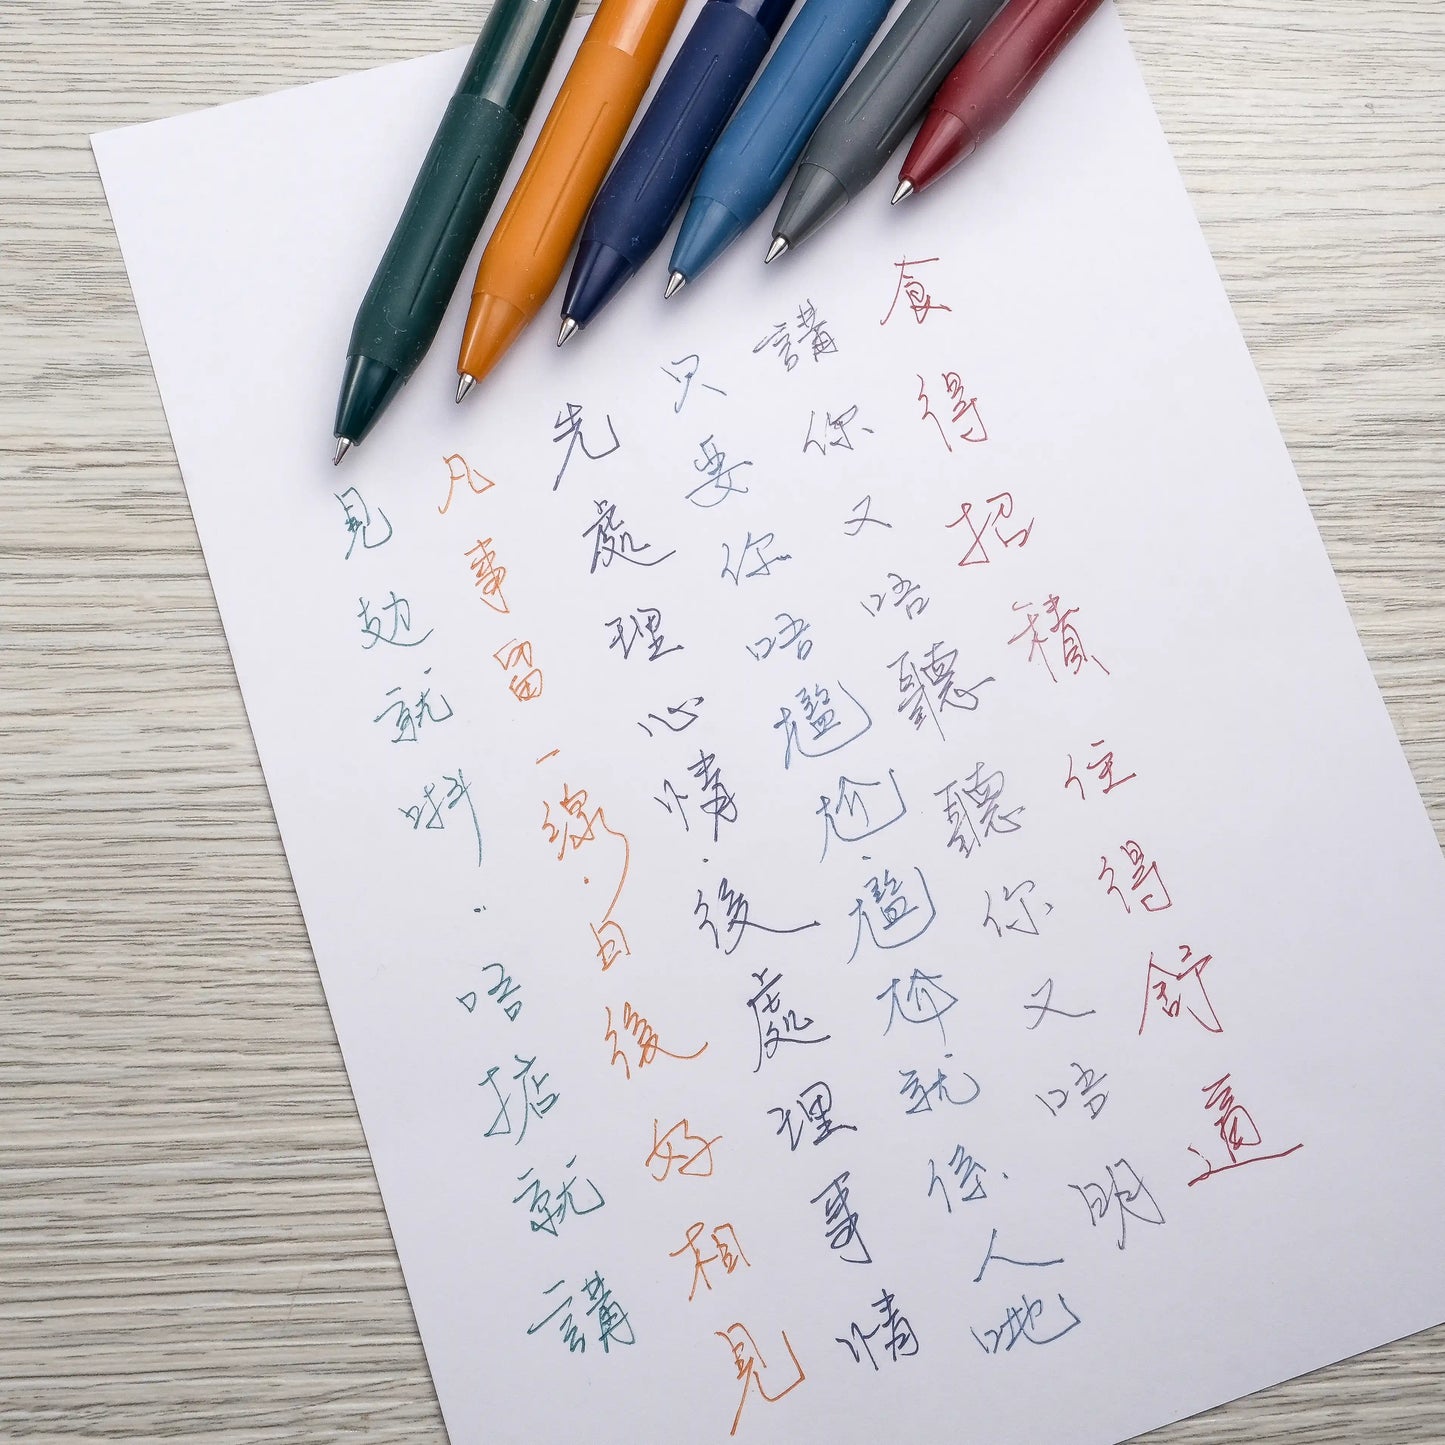 食得招積住得舒適
講你又唔聽聽你又唔明
只要你唔尷尬·尷尬就係人哋
先處理心情·後處理事情
凡事留一線·日後好相見
見攰就唞·唔掂就講